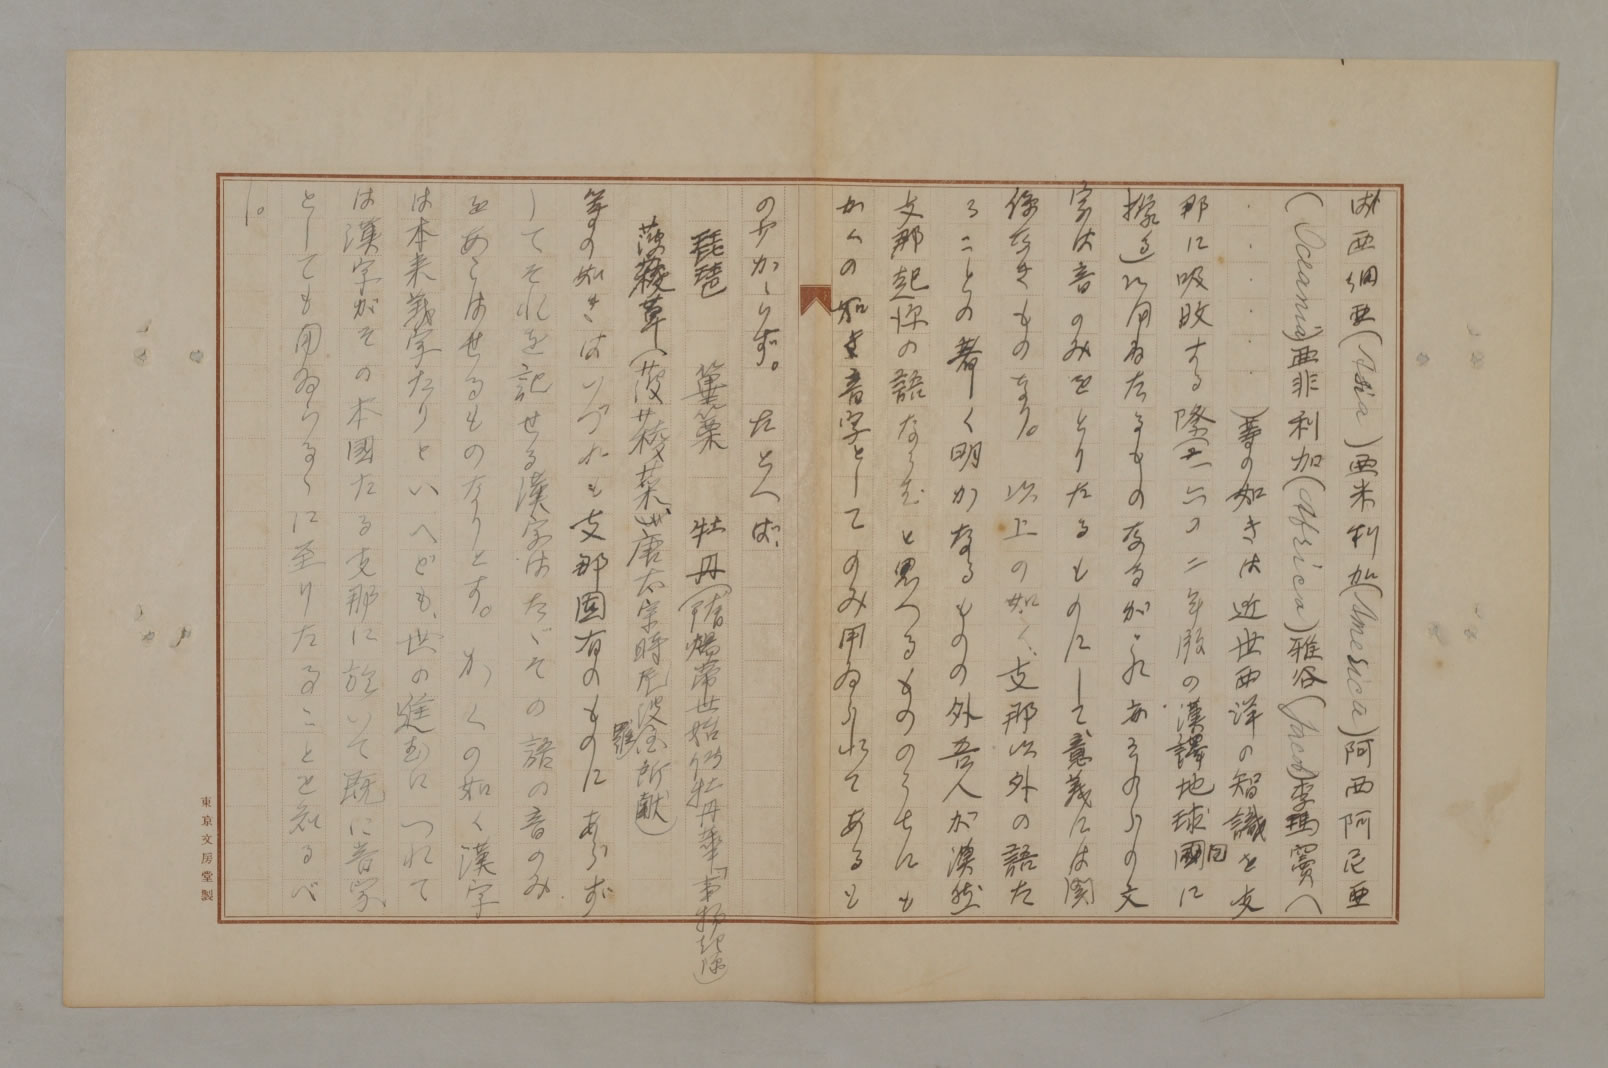 細西亜(Asia)亜米利加(America)阿西阿尼亜
(Oceania)亜非利加(Africa)雅谷(Jacob)李瑪竇(
・・・・・)等の如きは近世西洋の智識を支
那に吸收する際(一六〇二年版の漢譯地球圖に
據る)に用ゐたるものなるがこれ亦そのらの文
字は音のみをとりたるものにして意義には関
係なきものなり。以上の如く、支那以外の語た
ることの著しく明かなるものの外吾人が漠然
支那起源の語ならむと思へるもののうちにも
かくの如き音字としてのみ用ゐられてあるも
の少からず。たとへば、
琵琶 篳篥 牡丹(隋煬帝世始傳牡丹華「事物起源」)
菠薐草(菠薐菜、唐太宗時尼波羅國所献)
等の如きはいづれも支那固有のものにあらず
してそれを記せる漢字はたゞその語の音のみ
をあらはせるものなりとす。かくの如く漢字
は本来義字たりといへども、世の進むにつれて
は漢字がその本國たる支那に於いて既に音字
としても用ゐらるゝに至りたることを知るべ
し。
東京文房堂製